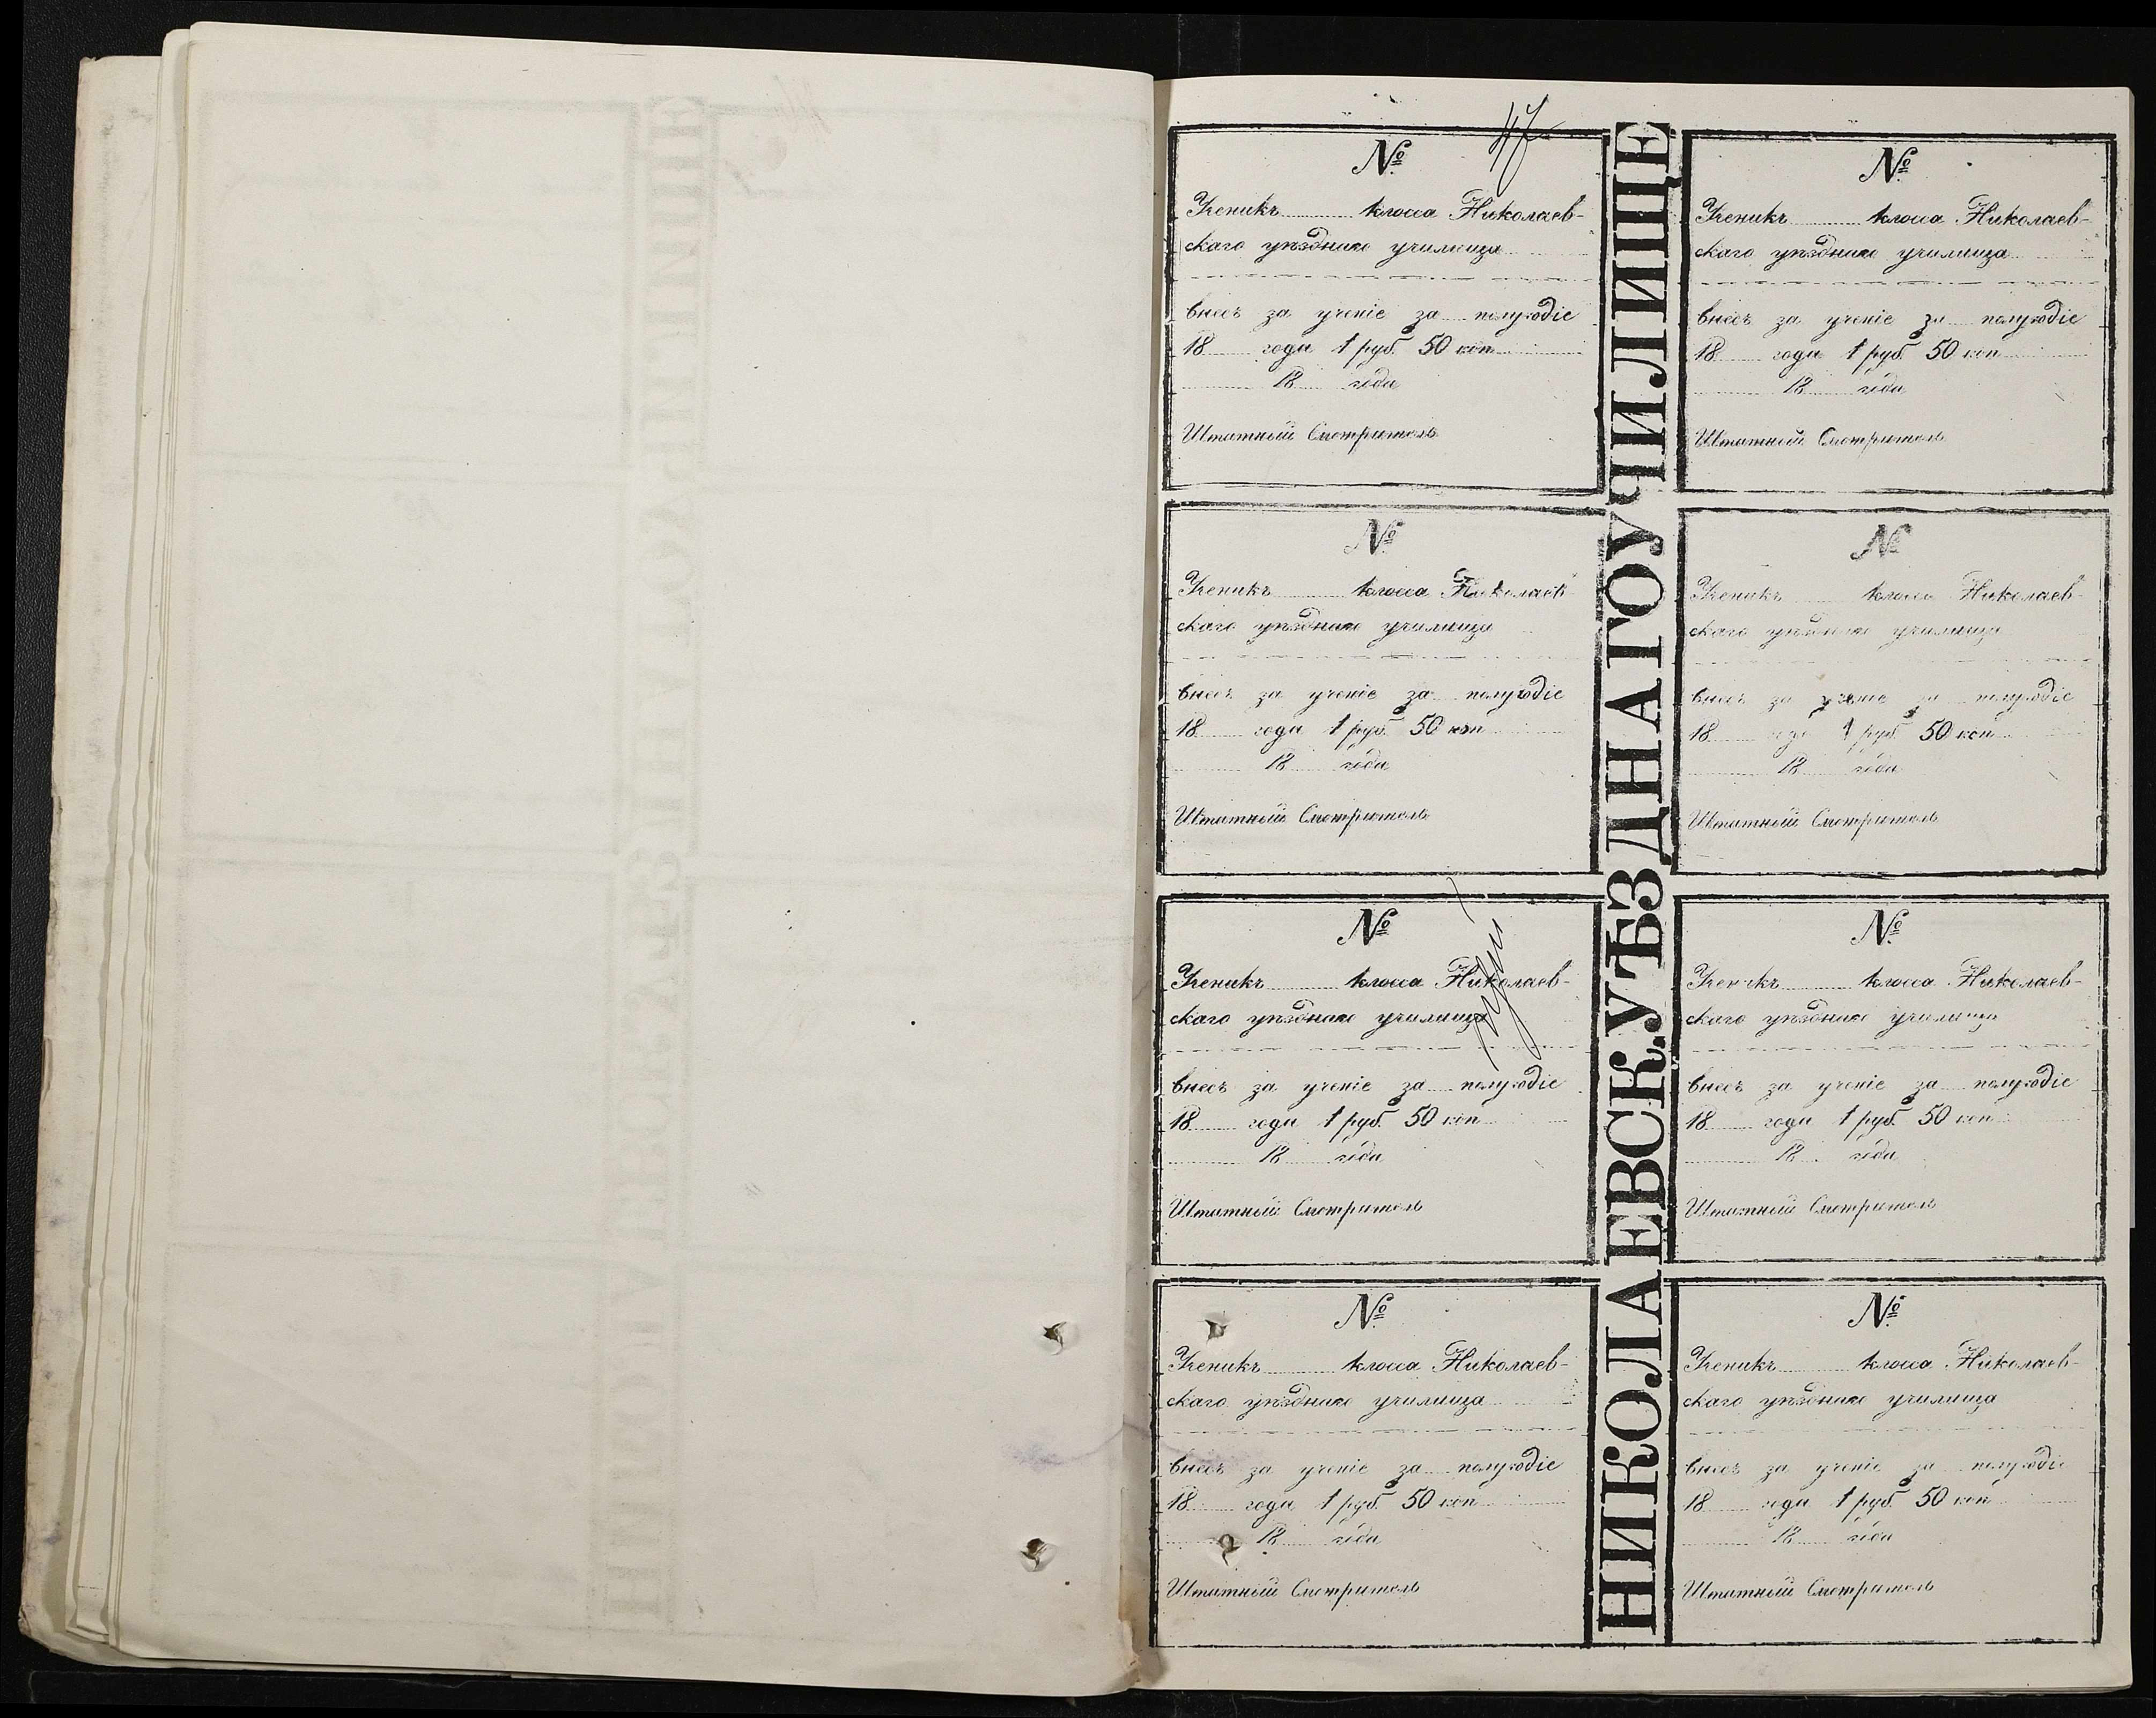 47
№
Ученикъ класса Николаев-
скаго уѣзднаго училища
внесъ за ученіе за полугодіе
18 года 1 руб. 50 коп
18 года
Штатный Смотритель
№
Ученикъ класса Николаев-
скаго уѣзднаго училища
внесъ за ученіе за полугодіе
18 года 1 руб. 50 коп
18 года
Штатный Смотритель
№
Ученикъ класса Николаев-
скаго уѣзднаго училища
внесъ за ученіе за полугодіе
18 года 1 руб. 50 коп
18 года
Штатный Смотритель
№
Ученикъ класса Николаев-
скаго уѣзднаго училища
внесъ за ученіе за полугодіе
18 года 1 руб. 50 коп
18 года
Штатный Смотритель
НИКОЛАЕВСК.УѢЗДНАГОУЧИЛИЩЕ
№
Ученикъ класса Николаев-
скаго уѣзднаго училища
внесъ за ученіе за полугодіе
18 года 1 руб. 50 коп
18 года
Штатный Смотритель
№
Ученикъ класса Николаев-
скаго уѣзднаго училища
внесъ за ученіе за полугодіе
18 года 1 руб. 50 коп
18 года
Штатный Смотритель
№
Ученикъ класса Николаев-
скаго уѣзднаго училища
внесъ за ученіе за полугодіе
18 года 1 руб. 50 коп
18 года
Штатный Смотритель
№
Ученикъ класса Николаев-
скаго уѣзднаго училища
внесъ за ученіе за полугодіе
18 года 1 руб. 50 коп
18 года
Штатный Смотритель